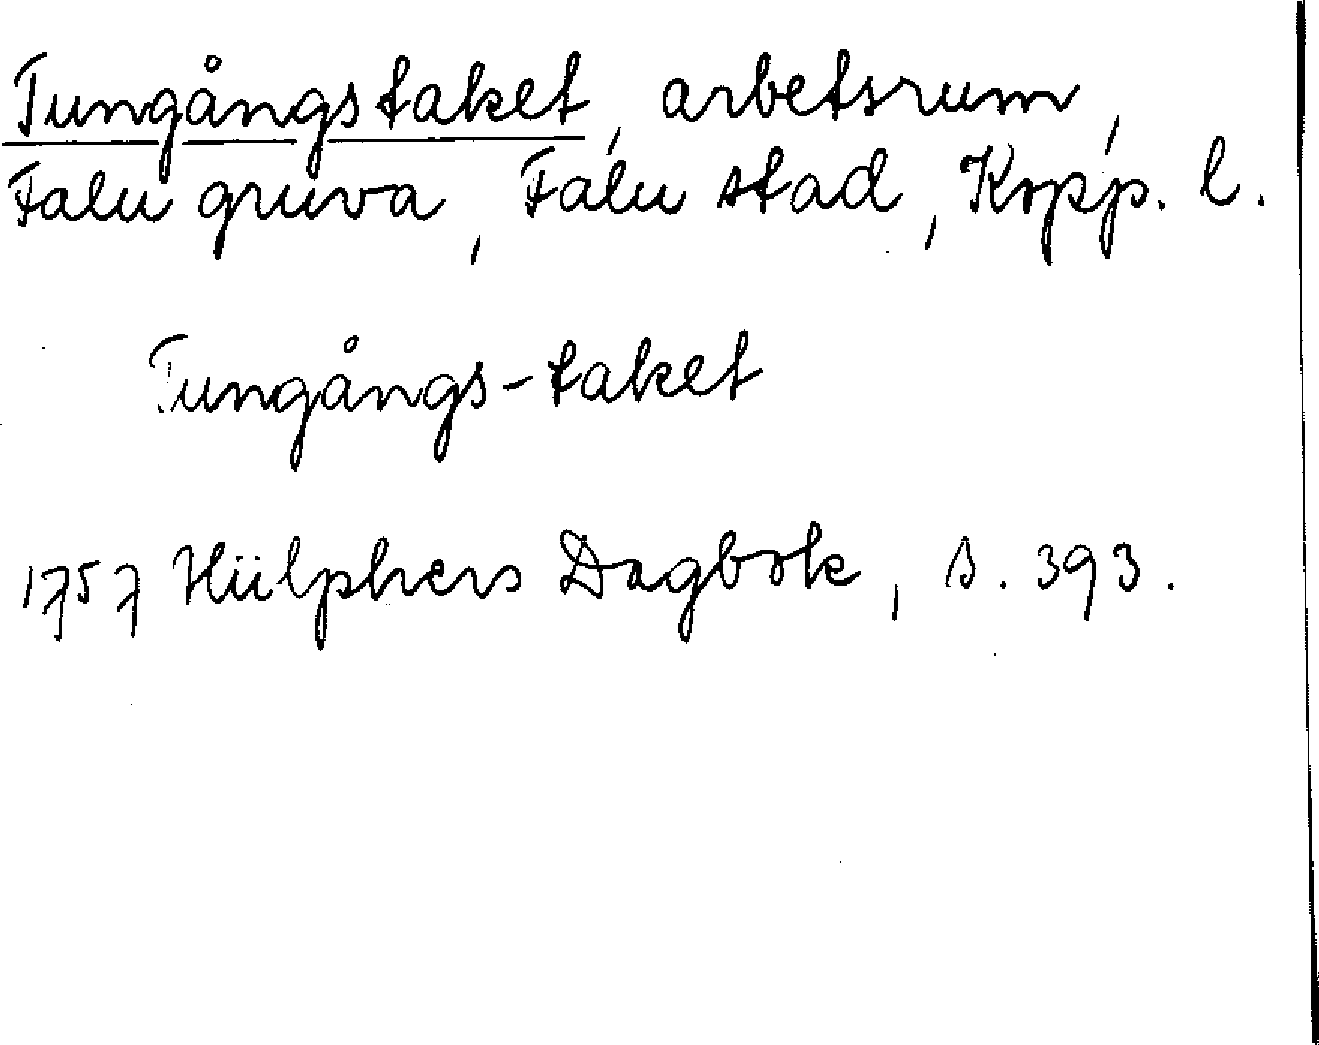 Tungångstaket, arbetsrum,
Falu gruva, Falu stad, Kopp. l.
Tungångs-taket
1757 Hülphers Dagbok, s. 393.